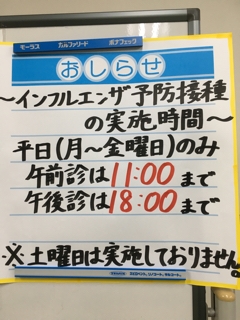 モーラス カルファリード ボアフェック
おしらせ
～インフルエンザ予防接種
の実施時間～
平日(月～金曜日)のみ
午前診は11:00まで
午後診は18:00まで
※土曜日は実施しておりません。